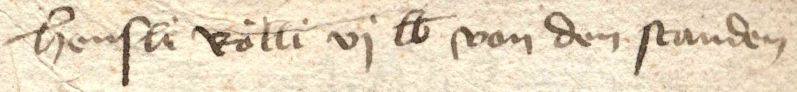 Henſli Rölli vj lb von den ſtanden